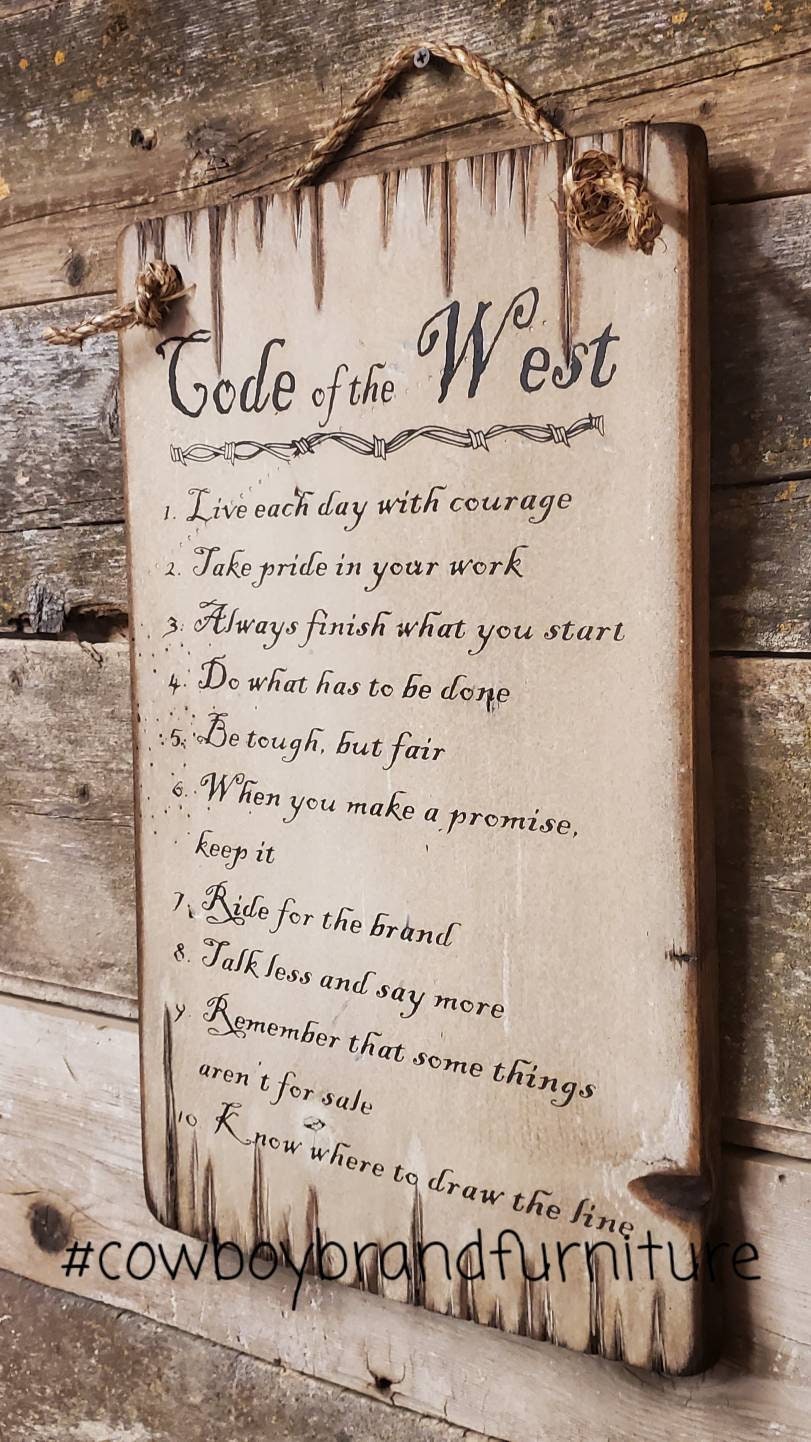 Code of the West
1. Live each day with courage
2. Take pride in your work
3. Always finish what you start
4. Do what has to be done
5. Be tough, but fair
6. When you make a promise,
keep it
7. Ride for the brand
8. Talk less and say more
9. Remember that some things
aren't for sale
10 Know where to draw the line
#cowboybrandfurniture